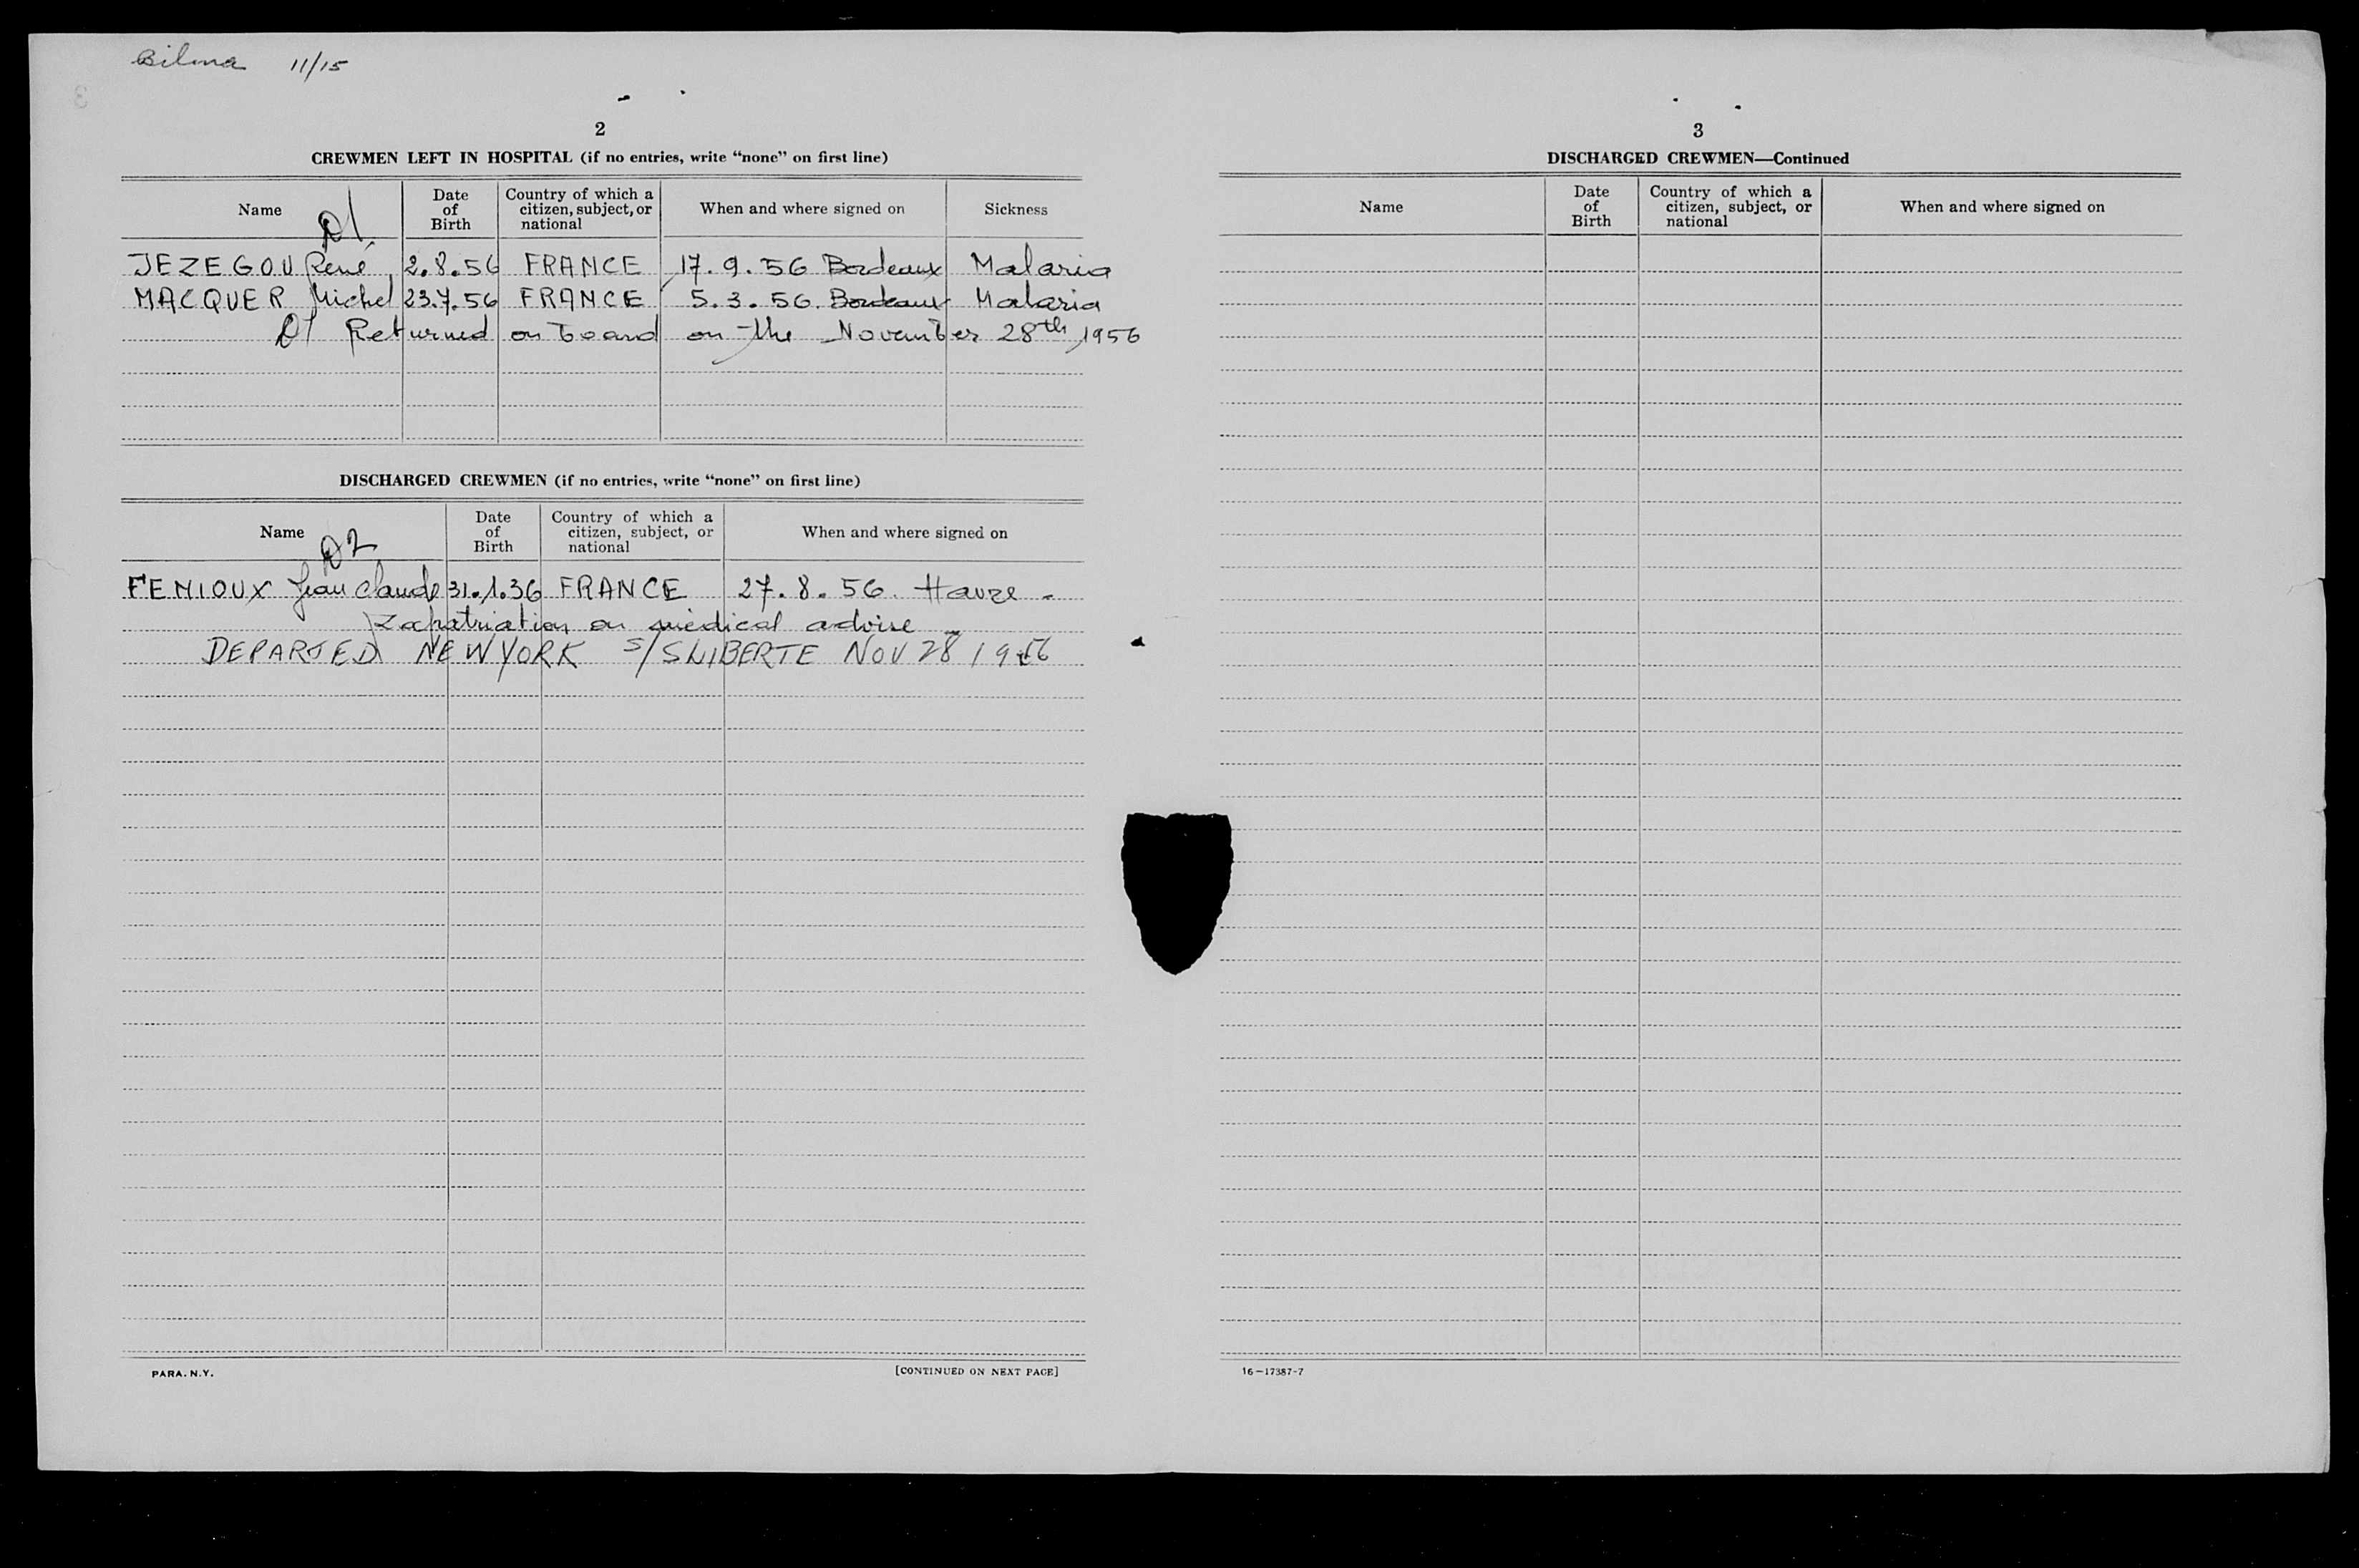 Bilma 11/15
2
CREWMEN LEFT IN HOSPITAL (if no entries, write “none” on first line)
Name D1 Date of Birth Country of which a citizen, subject, or national When and where signed on Sickness
JEZEGOU René 2.8.56 FRANCE 17.9.56 Bordeaux Malaria
MACQUER Michel 23.7.56 FRANCE 5.3.56 Bordeaux Malaria
D1 Returned on board on the November 28th, 1956
DISCHARGED CREWMEN (if no entries, write “none” on first line)
Name D2 Date of Birth Country of which a citizen, subject, or national When and where signed on
FENIOUX Jean Claude 31.1.36 FRANCE 27.8.56. Havre -
Rapatriation on medical advise
DEPARTED NEW YORK S/S LIBERTE NOV 28 1956
PARA. N.Y. [CONTINUED ON NEXT PAGE]
3
DISCHARGED CREWMEN—Continued
Name Date of Birth Country of which a citizen, subject, or national When and where signed on
16—17387-7